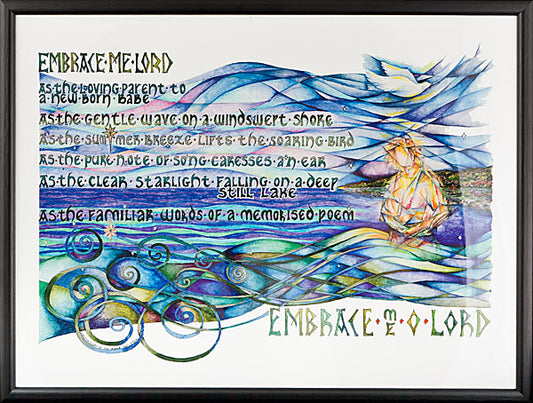 EMBRACE·ME·LORD
AS·THE·LOVING·PARENT·TO
A·NEW·BORN·BABE
AS·THE·GENTLE·WAVE·ON·A·WINDSWEPT·SHORE
AS·THE·SUMMER·BREEZE·LIFTS·THE·SOARING·BIRD
AS·THE·PURE·NOTE·OF·SONG·CARESSES·AN·EAR
AS·THE·CLEAR·STARLIGHT·FALLING·ON·A·DEEP
STILL·LAKE
AS·THE·FAMILIAR·WORDS·OF·A·MEMORISED·POEM
EMBRACE·ME·O·LORD